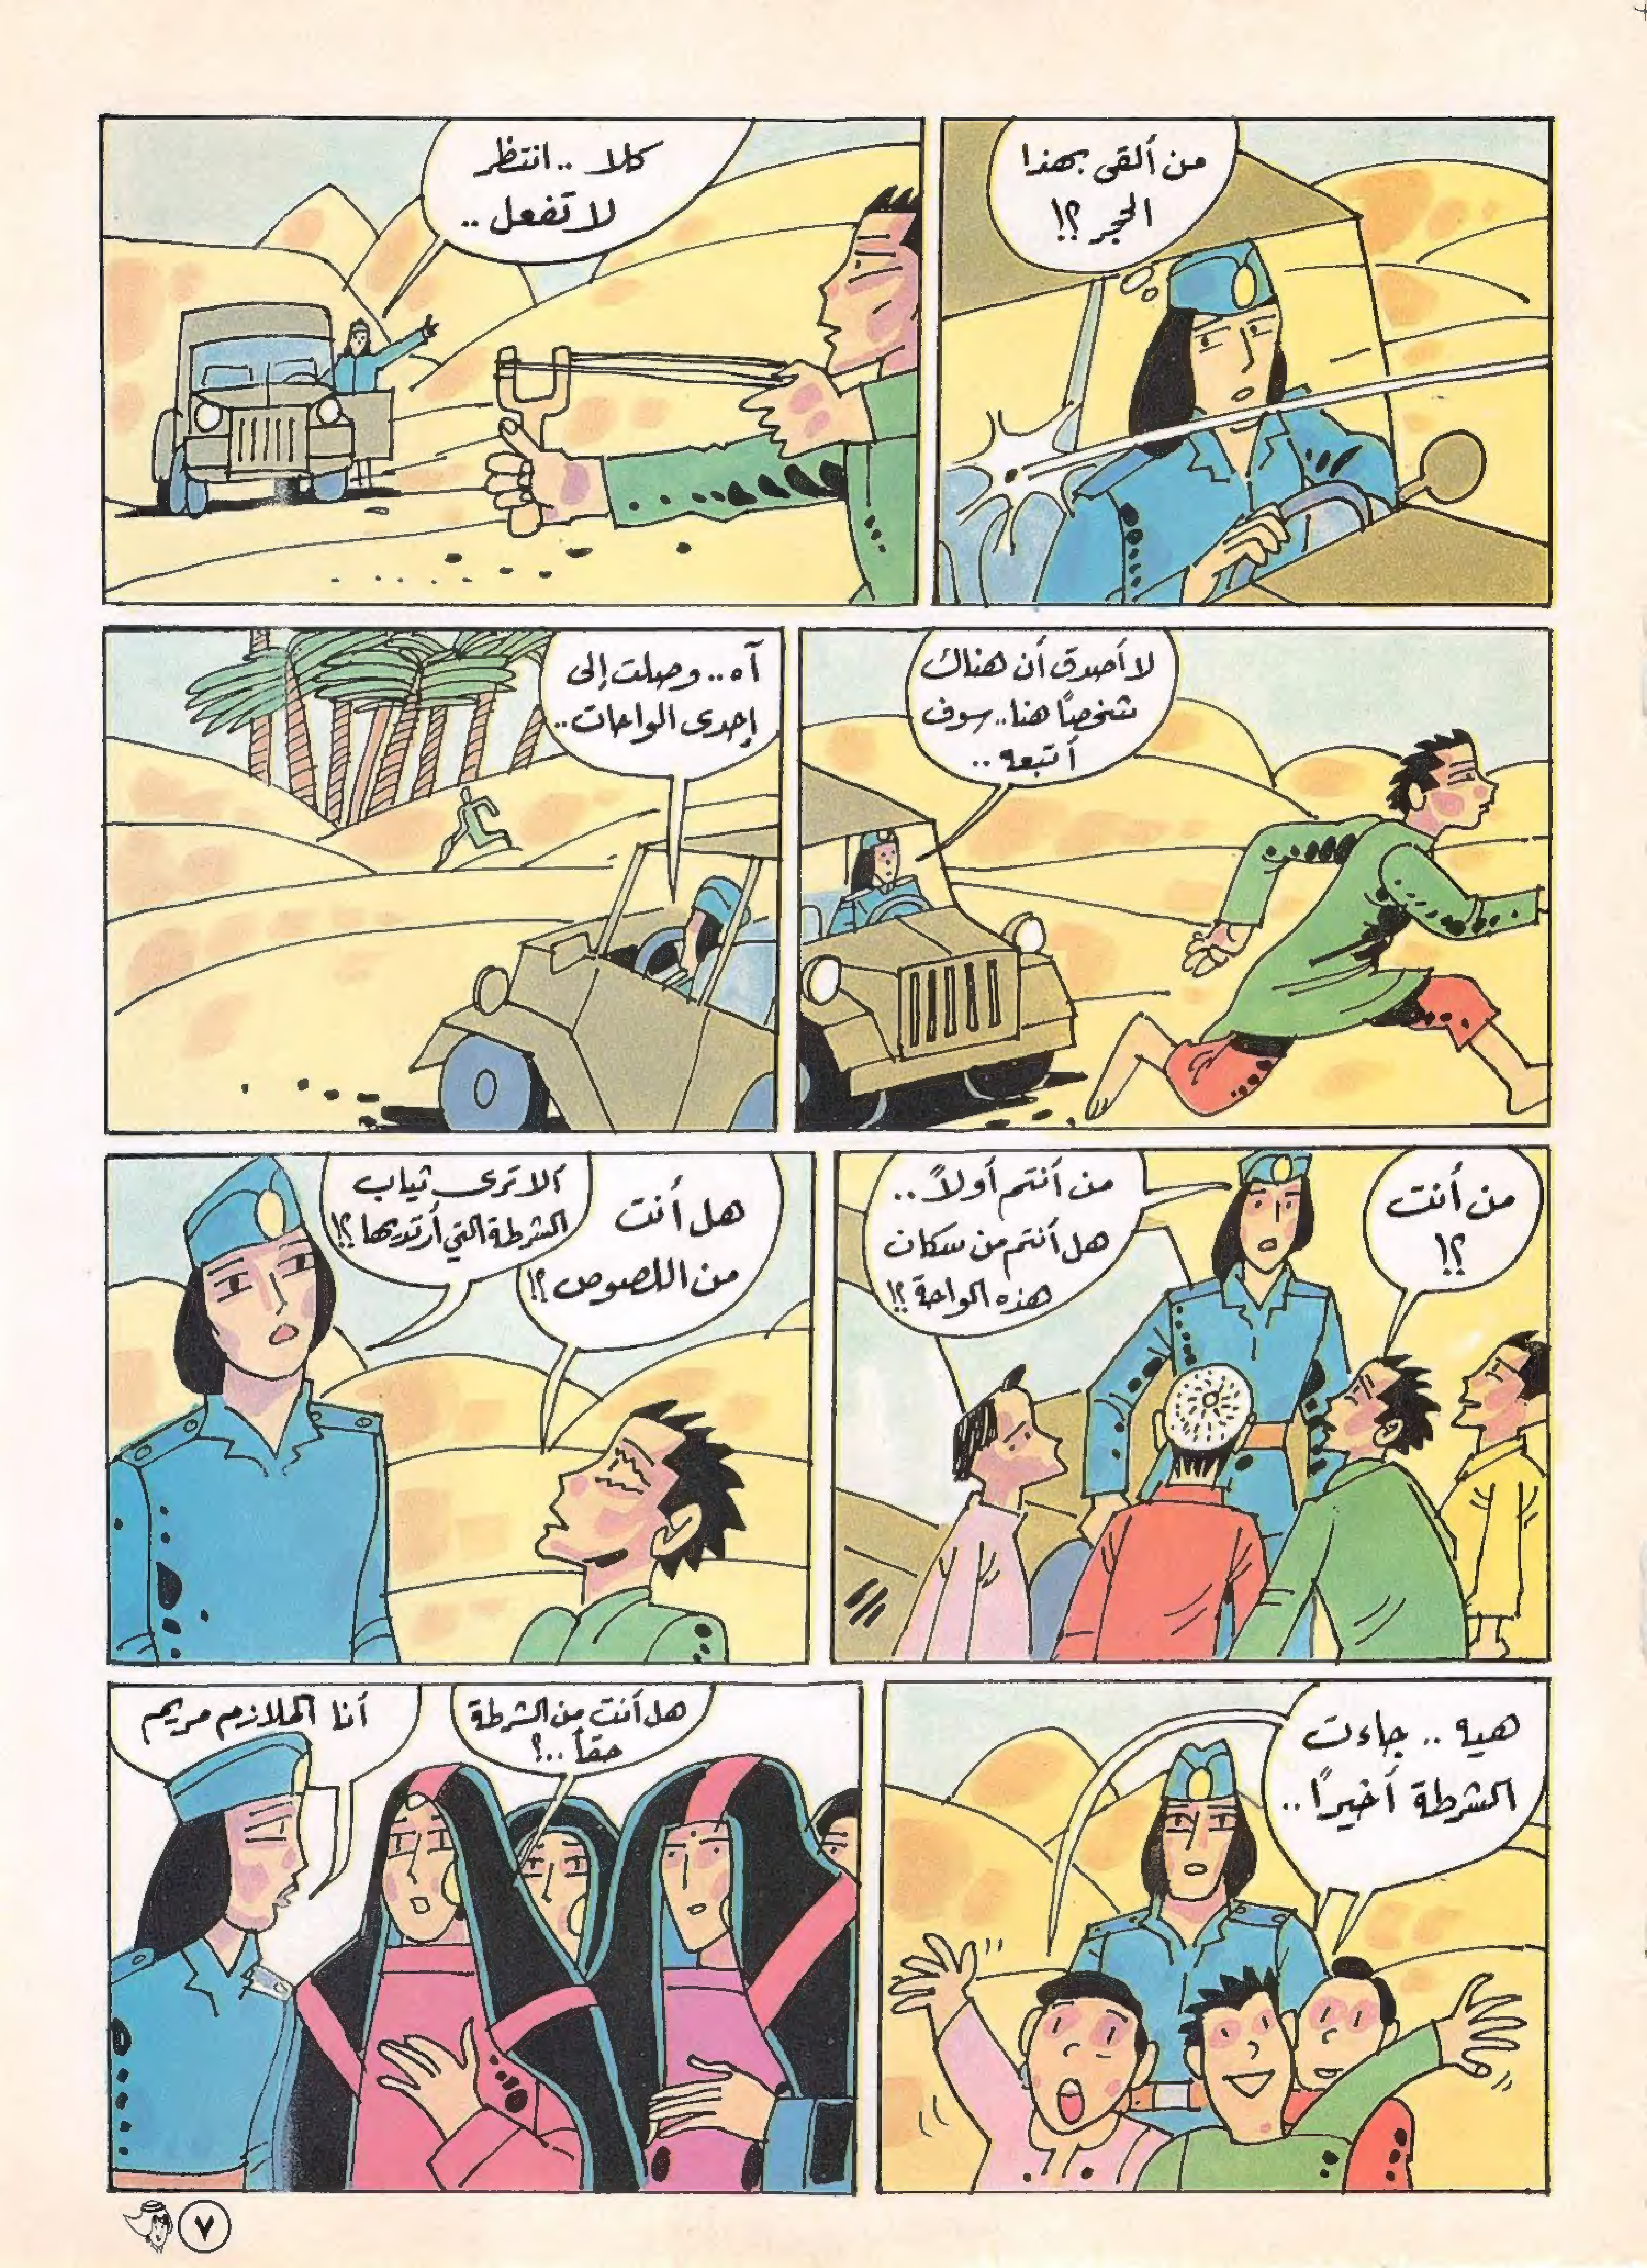 من ألقى بهذا
الحجر ؟!
كلا .. انتظر
لا تفعل ..
لا أصدق أن هناك
شخصاً هنا.. سوف
أتبعه ..
آه.. وصلت إلى
إحدى الواحات..
من أنت
؟!
من أنتم أولاً ..
هل أنتم من سكان
هذه الواحة ؟!
هل أنت
من اللصوص ؟!
ألا ترى ثياب
الشرطة التي أرتديها ؟!
هيه .. جاءت
الشرطة أخيراً ..
هل أنت من الشرطة
حقاً ..؟
أنا الملازم مريم
٧